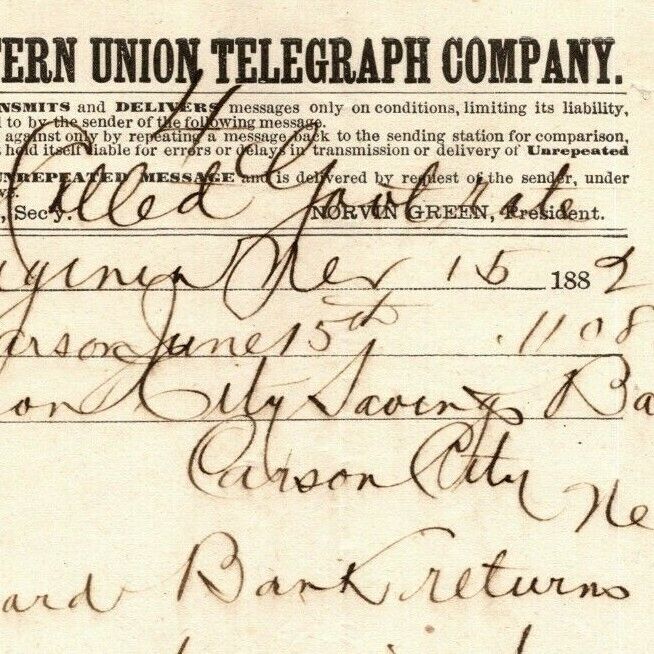 TERN UNION TELEGRAPH COMPANY.
NSMITS and DELIVERS messages only on conditions, limiting its liability,
l to by the sender of the following message.
against only by repeating a message back to the sending station for comparison,
t hold itself liable for errors or delays in transmission or delivery of Unrepeated
UNREPEATED MESSAGE and is delivered by request of the sender, under
, Sec'y. NORVIN GREEN, President.
Collect
rginia Nev 15 1882
arson June 15th 1108
on City Savings Ba
Carson City Ne
ard Bank returns